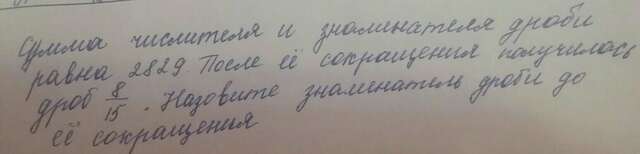 Сумма числителя и знаменателя дроби
равна 2829. После её сокращения получилась
дроб 8/15. Назовите знаменатель дроби до
её сокращения